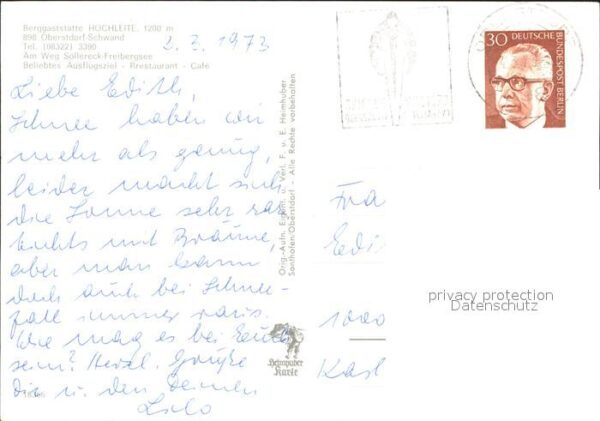 Berggaststätte HOCHLEITE, 1200 m
898 Oberstdorf-Schwand
Tel. (08322) 3390
Am Weg Söllereck-Freibergsee
Beliebtes Ausflugsziel - Restaurant - Café
2.3.1973
Liebe Edith,
Schnee haben wir
mehr als genug,
leider macht sich
die Sonne sehr rar
Nichts mit Bräune,
aber man kann
doch auch bei Schnee-
fall immer raus.
Wie mag es bei Euch
sein? Herzl. Grüße
Dir u. den Deinen
Lilo
Orig.-Aufn. Eigent. u. Verl. F. u. E. Heimhuber
Sonthofen/Oberstdorf - Alle Rechte vorbehalten
Heimhuber
Karte
30
DEUTSCHE
BUNDESPOST BERLIN
Fra
Edi
1000
Karl
privacy protection
Datenschutz